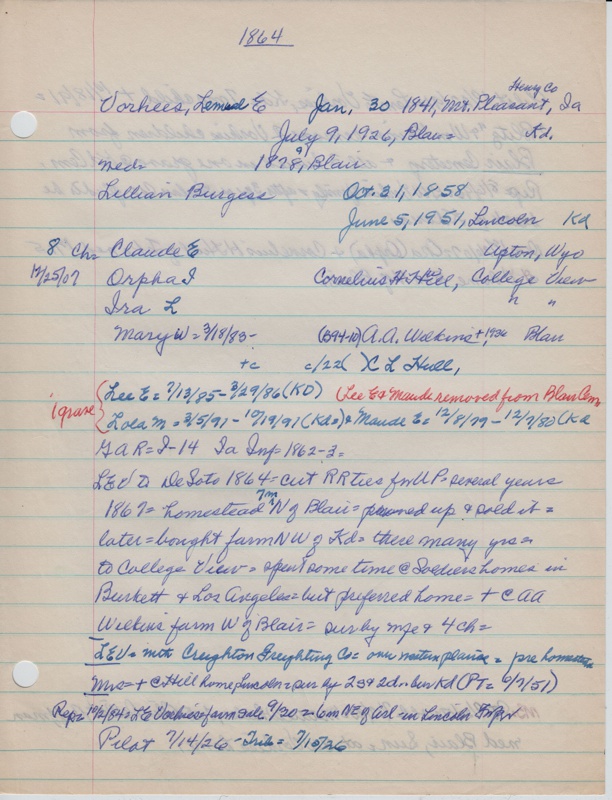 1864
Henry Co
Vorhees, Lemuel E Jan. 30 1841, Mt. Pleasant, Ia
July 9, 1926, Blair = Kd.
med = 1878, Blair
Lillian Burgess Oct. 31, 1858
June 5, 1951, Lincoln Kd
8 Ch = Claude E Upton, Wyo
12/25/07 Orpha I Cornelius H Hill, College View
Ira L " "
Mary W = 3/18/83 - (B94-10) A.A. Wilkins + 1936 Blair
+c c/22( ) C L Hull,
1 grave Lee E = 7/13/85 - 3/29/86 (KD) (Lee E & Maude removed from Blair Cem
Lola M = 3/5/91 - 10/19/91 (Kd=) & Maude E = 12/8/79 - 12/7/80 (Kd
GAR = I-14 Ia Inf = 1862-3 =
LEV to DeSoto 1864 = cut RR ties for UP = several years
1867 = homestead 7m N of Blair = proved up & sold it =
later = bought farm NW of Kd = there many yrs =
to College View = spent some time @ Soldiers homes in
Burkett & Los Angeles = but preferred home = + C AA
Wilkins farm W of Blair = sur by wife & 4 ch =
LEV = with Creighton Freighting Co = one across plains = pre homestead
Mrs = + C Hill home Lincoln = sur by 2s & 2d = bur Kd (PT = 6/7/51)
Rep = 10/2/84 = LE Vorhees = farm sale 9/30 = 6m NE of Arl - in Lincoln
Pilot 7/14/26 - Trib = 7/15/26